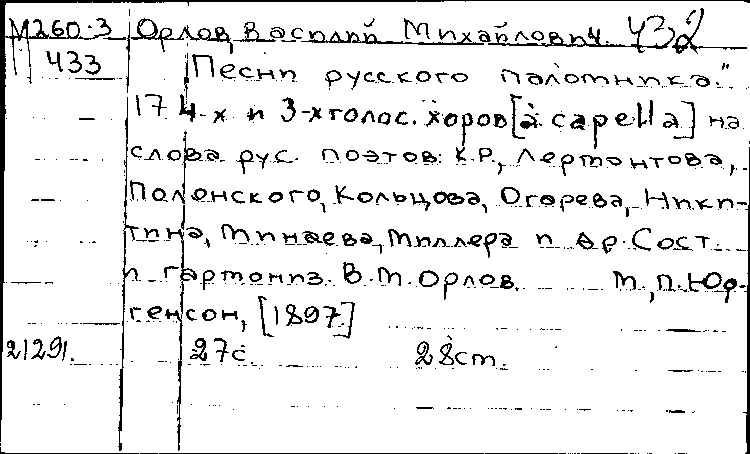 М260-3 Орлов, Василий Михайлович. 432
433 Песни русского паломника."
17 4-х и 3-хголос. хоров [a capella] на
слова рус. поэтов: К.Р., Лермонтова,
Полонского, Кольцова, Огарева, Ники-
тина, Минаева, Миллера и др. Сост.
и гармониз. В.М. Орлов. М., П. Юр-
генсон, [1897.]
21291. 27с. 28см.